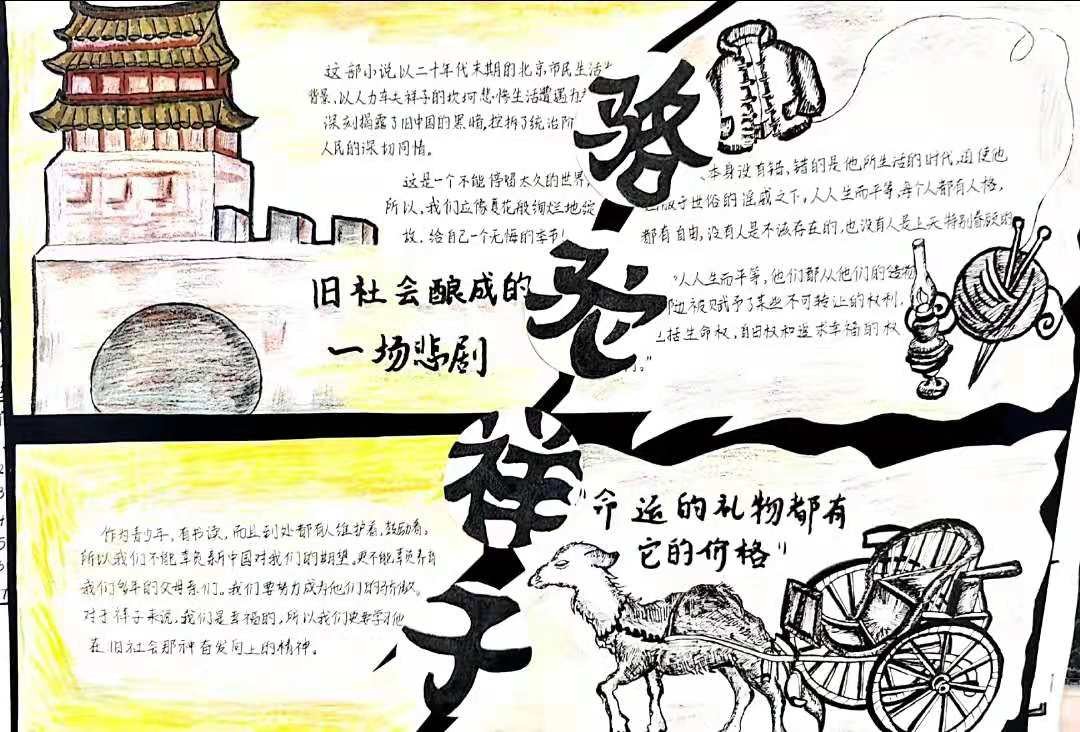 骆驼祥子
这部小说以二十年代末期的北京市民生活
背景,以人力车夫祥子的坎坷悲惨生活遭遇为
深刻揭露了旧中国的黑暗,控拆了统治阶
人民的深切同情。
这是一个不能停唱太久的世界,
所以,我们应像夏花般绚烂地绽
故,给自己一个无悔的季节!
旧社会酿成的
一场悲剧
本身没有错,错的是他所生活的时代,迫使他
服于世俗的淫威之下,人人生而平等,每个人都有人格,
都有自由,没有人是不该存在的,也没有人是上天特别眷顾的
"人人生而平等,他们都从他们的造物
边被赋予了某些不可转让的权利,
括生命权,自由权和追求幸福的权
。"
作为青少年,有书读,而且到处都有人维护着,鼓励着,
所以我们不能辜负新中国对我们的期望,更不能辜负养育
我们多年的父母亲们。我们要努力成为他们的骄傲。
对于祥子来说,我们是幸福的,所以我们更要学习他
在旧社会那种奋发向上的精神。
"命运的礼物都有
它的价格"